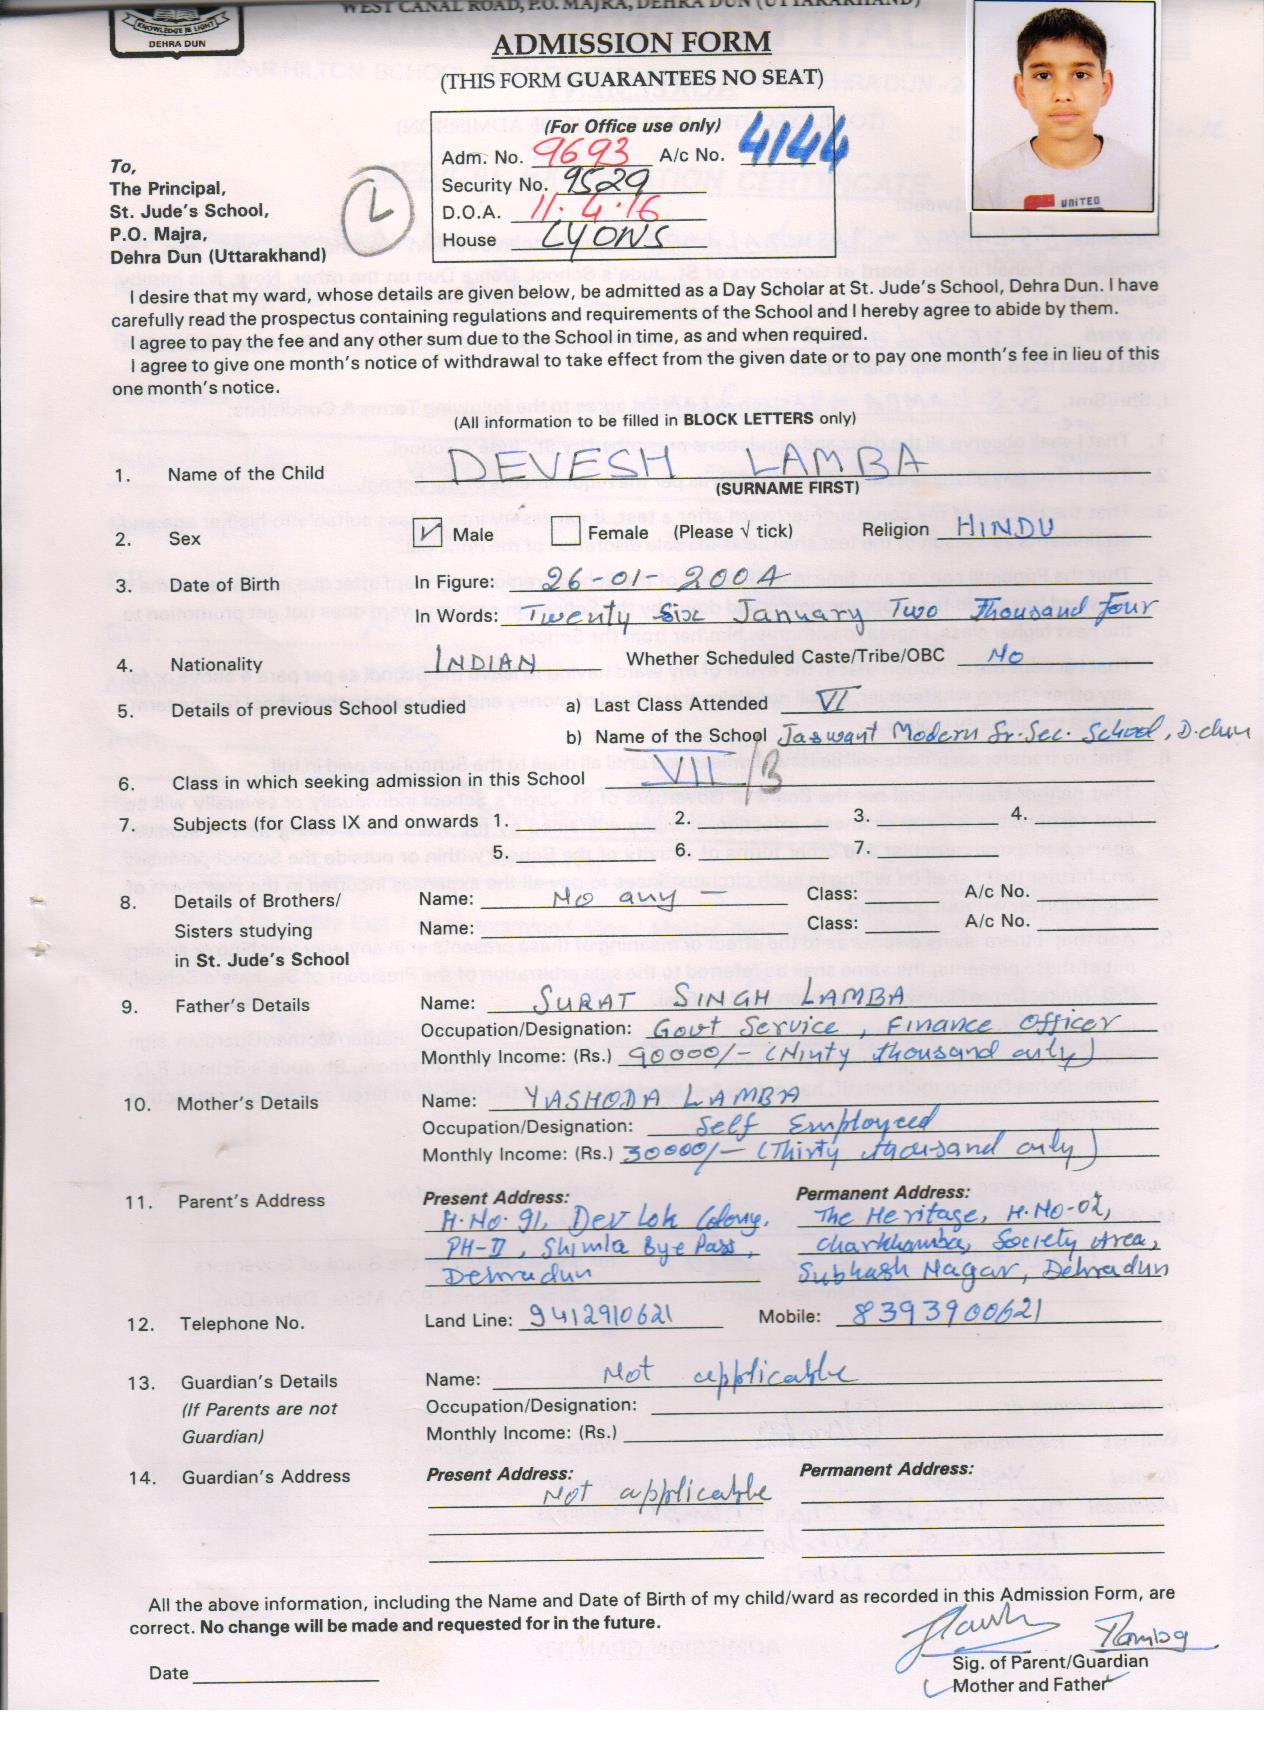 WEST CANAL ROAD, P.O. MAJRA, DEHRA DUN (UTTARAKHAND)
KNOWLEDGE IS LIGHT
DEHRA DUN
ADMISSION FORM
(THIS FORM GUARANTEES NO SEAT)
(For Office use only)
Adm. No. 9693 A/c No. 4144
Security No. 9529
D.O.A. 11.4.16
House LYONS
L
To,
The Principal,
St. Jude's School,
P.O. Majra,
Dehra Dun (Uttarakhand)
UNITED
I desire that my ward, whose details are given below, be admitted as a Day Scholar at St. Jude's School, Dehra Dun. I have
carefully read the prospectus containing regulations and requirements of the School and I hereby agree to abide by them.
I agree to pay the fee and any other sum due to the School in time, as and when required.
I agree to give one month's notice of withdrawal to take effect from the given date or to pay one month's fee in lieu of this
one month's notice.
(All information to be filled in BLOCK LETTERS only)
1. Name of the Child DEVESH LAMBA
(SURNAME FIRST)
2. Sex ✓ Male Female (Please √ tick) Religion HINDU
3. Date of Birth In Figure: 26-01-2004
In Words: Twenty Six January Two Thousand Four
4. Nationality INDIAN Whether Scheduled Caste/Tribe/OBC No
5. Details of previous School studied a) Last Class Attended VI
b) Name of the School Jaswant Modern Sr. Sec. School, D.dun
6. Class in which seeking admission in this School VII/B
7. Subjects (for Class IX and onwards 1. 2. 3. 4.
5. 6. 7.
8. Details of Brothers/ Name: No any — Class: A/c No.
Sisters studying Name: Class: A/c No.
in St. Jude's School
9. Father's Details Name: SURAT SINGH LAMBA
Occupation/Designation: Govt Service, Finance Officer
Monthly Income: (Rs.) 90000/- (Ninty thousand only)
10. Mother's Details Name: YASHODA LAMBA
Occupation/Designation: Self Employeed
Monthly Income: (Rs.) 30000/- (Thirty thousand only)
11. Parent's Address Present Address: Permanent Address:
H.No. 91, Dev Lok Colony, The Heritage, H.No-02,
PH-II, Shimla Bye Pass, Charkhamba, Society Area,
Dehradun Subhash Nagar, Dehradun
12. Telephone No. Land Line: 9412910621 Mobile: 8393900621
13. Guardian's Details Name: Not applicable
(If Parents are not Occupation/Designation:
Guardian) Monthly Income: (Rs.)
14. Guardian's Address Present Address: Permanent Address:
Not applicable
All the above information, including the Name and Date of Birth of my child/ward as recorded in this Admission Form, are
correct. No change will be made and requested for in the future.
Date
Sig. of Parent/Guardian
Mother and Father